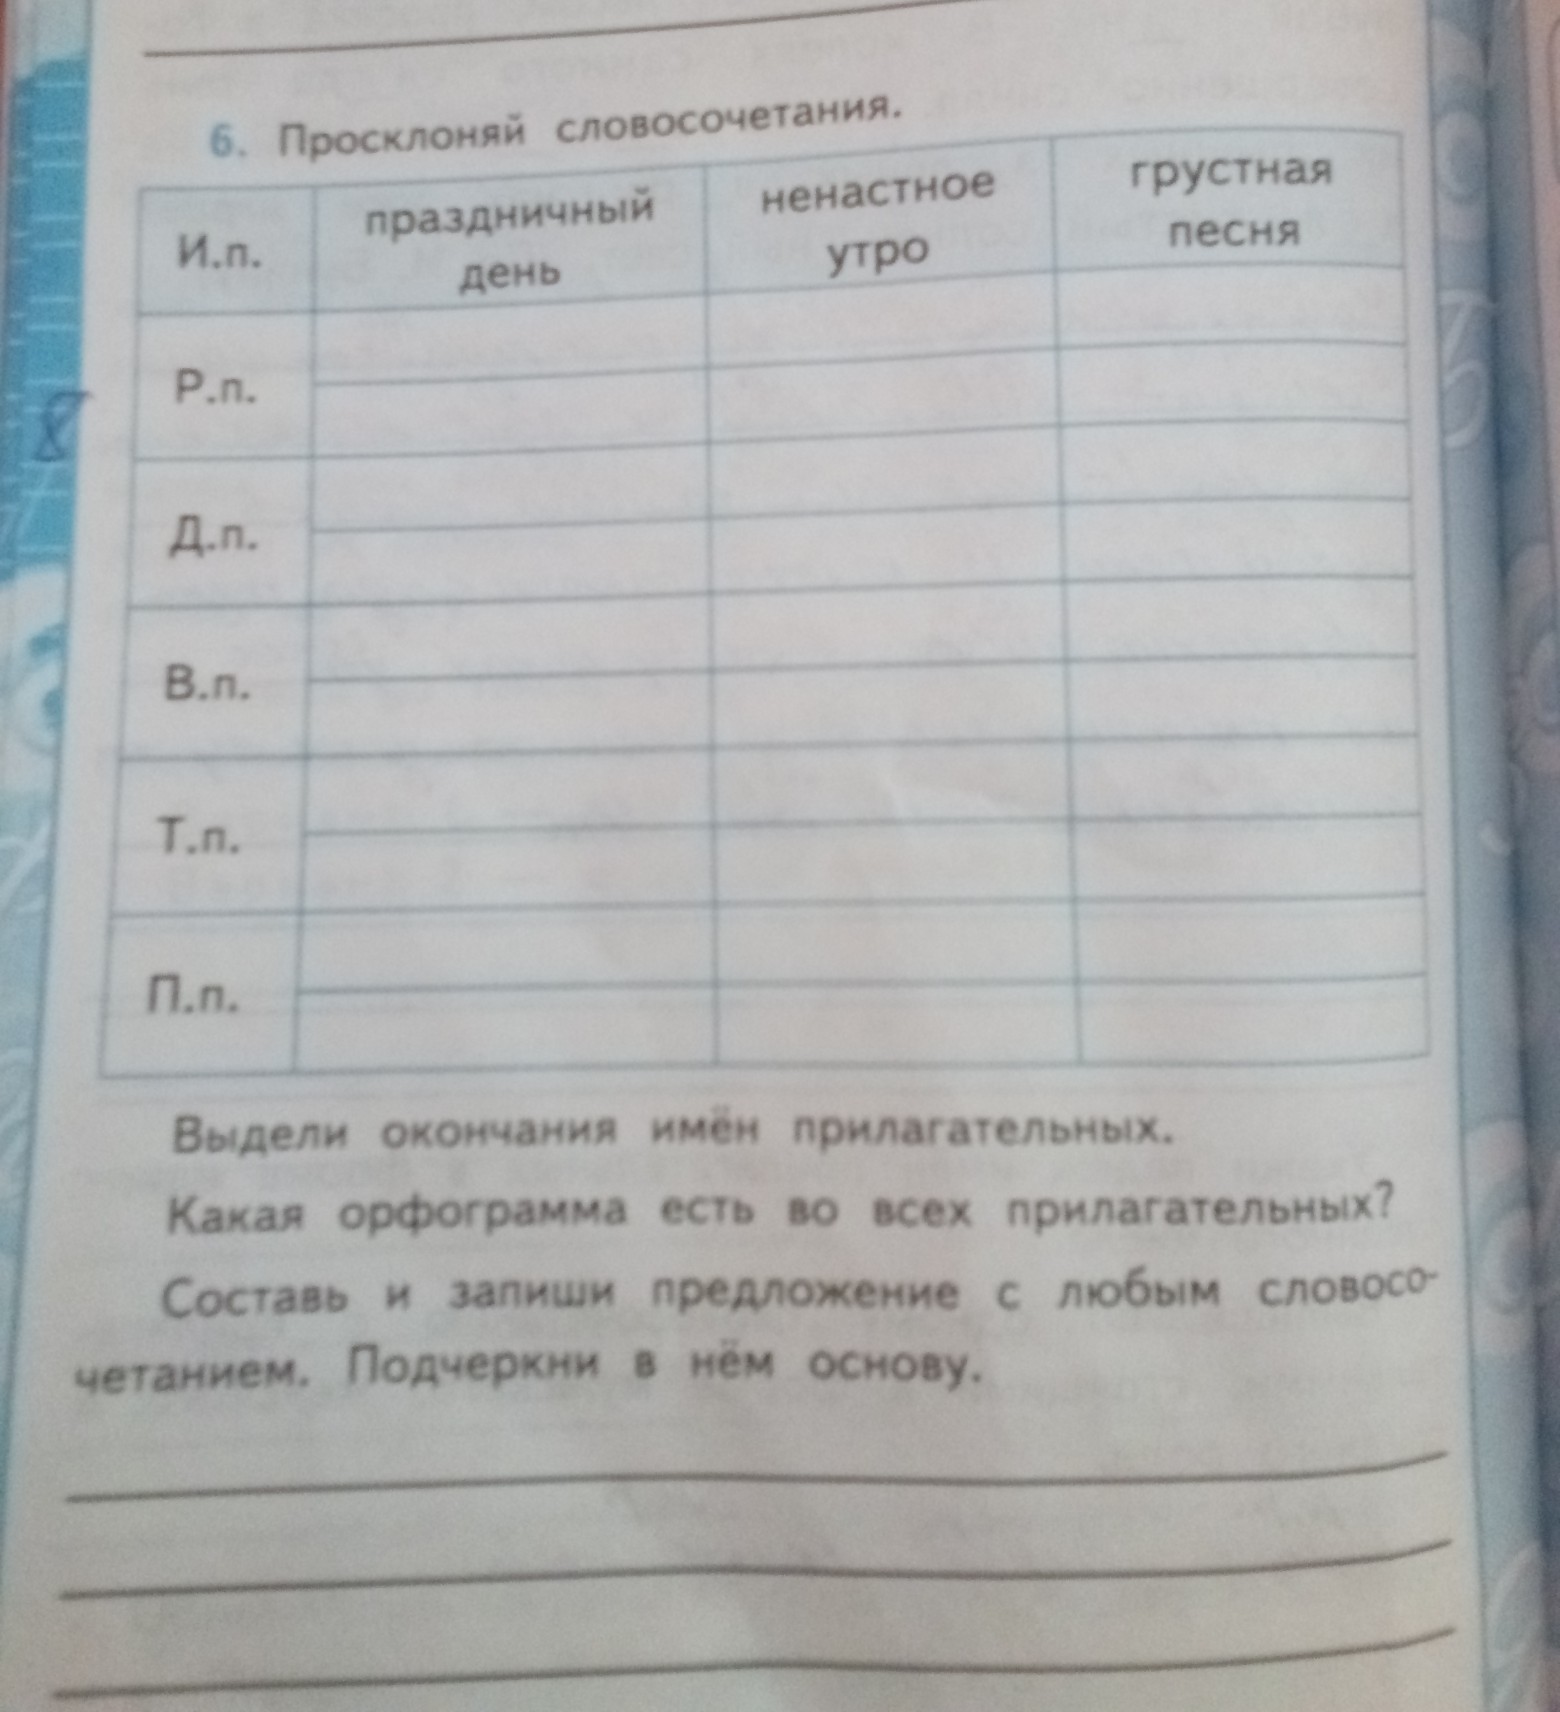 6. Просклоняй словосочетания.
И.п.
праздничный
день
ненастное
утро
грустная
песня
Р.п.
Д.п.
В.п.
Т.п.
П.п.
8
Выдели окончания имён прилагательных.
Какая орфограмма есть во всех прилагательных?
Составь и запиши предложение с любым словосо-
четанием. Подчеркни в нём основу.